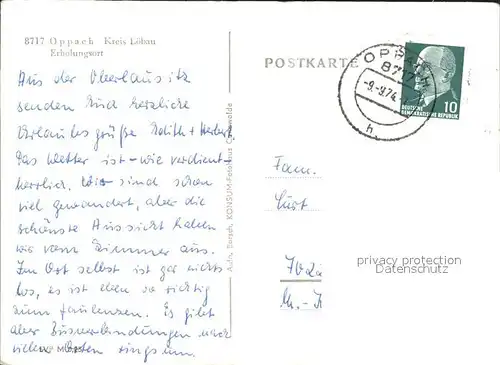 8717 Oppach Kreis Löbau
Erholungsort
Aus der Oberlausitz
senden Euch herzliche
Urlaubsgrüße Edith + Herbert.
Das Wetter ist - wie verdient -
herrlich. Wir sind schon
viel gewandert, aber die
schönste Aussicht haben
wir vom Zimmer aus.
Im Ort selbst ist gar nichts
los, es ist eben so richtig
zum faulenzen. Es gibt
aber Busverbindungen nach
vielen Orten ringsum.
KONSUM-Fotohaus
POSTKARTE
OPPACH
8717
-9.-9.74
h
10
DEUTSCHE
DEMOKRATISCHE REPUBLIK
Fam.
Curt
privacy protection
Datenschutz